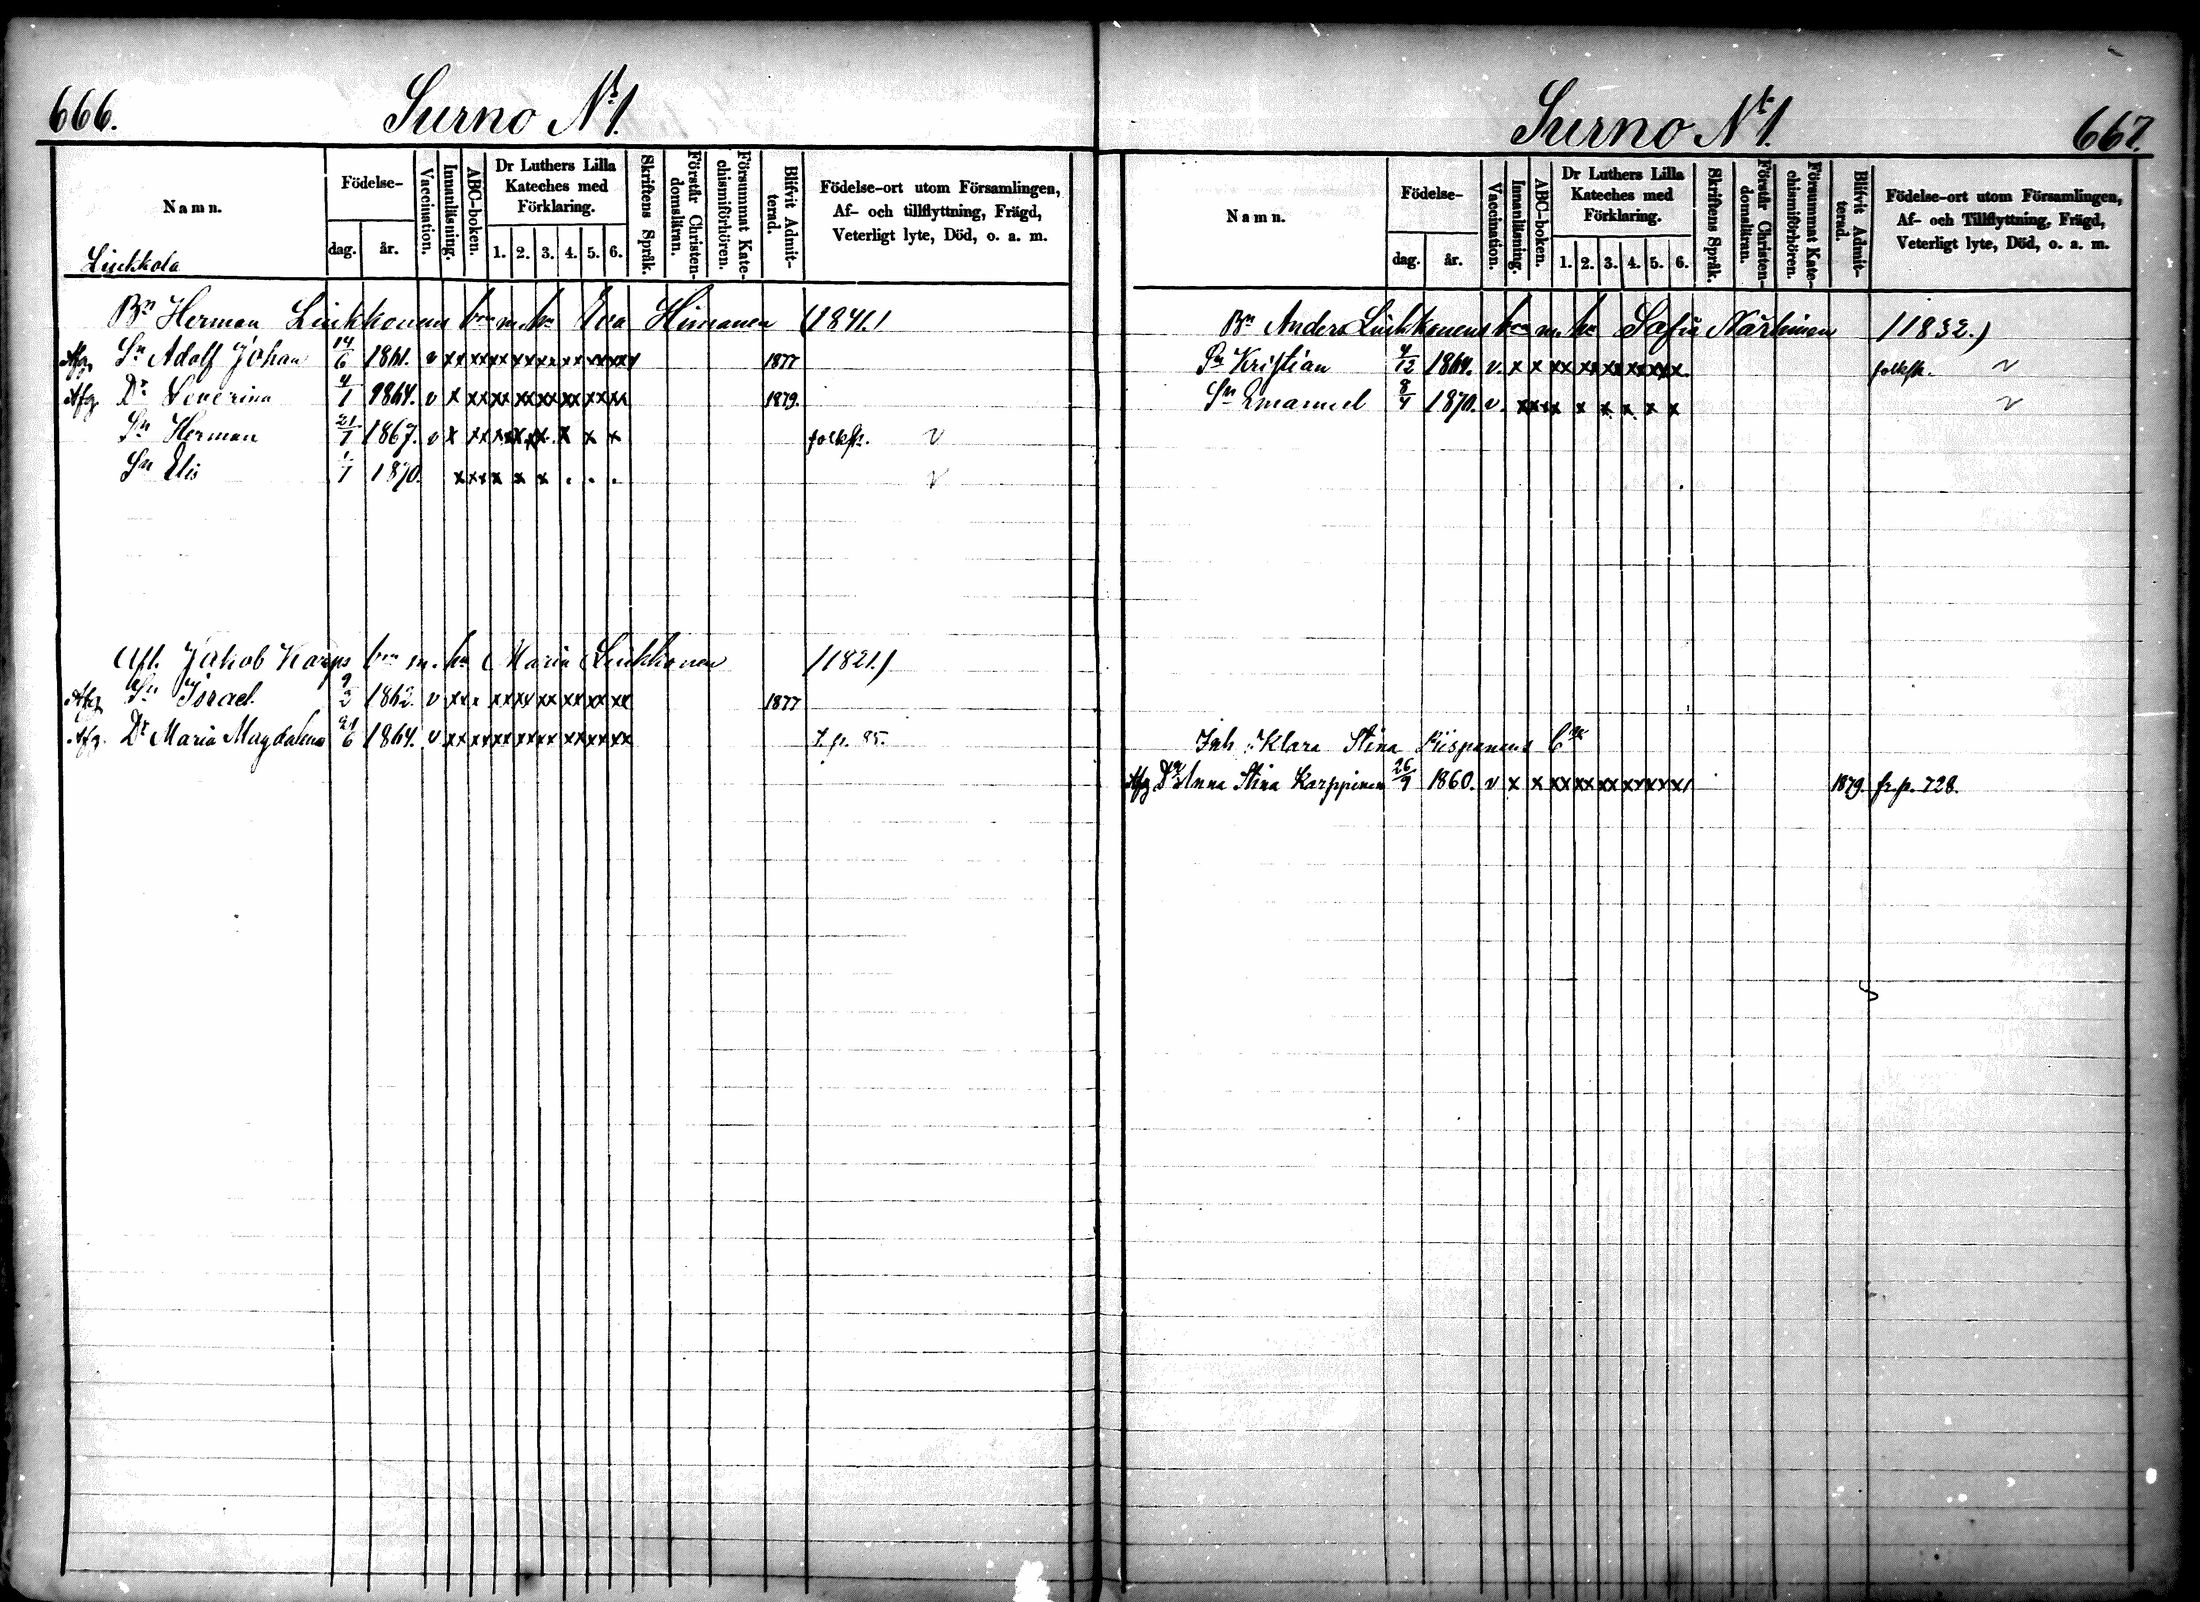 666.
Surno Nr 1.
Namn.
Födelse-
dag. år.
Vaccination.
Innanläsning.
ABC-boken.
Dr Luthers Lilla Kateches med Förklaring.
1. 2. 3. 4. 5. 6.
Skriftens Språk.
Förstår Christendomsläran.
Försummat Katechismiförhören.
Blifvit Admitterad.
Födelse-ort utom Församlingen,
Af- och tillflyttning, Frägd,
Veterligt lyte, Död, o. a. m.
Liukkola
Bn Herman Liukkonens bn m. hu Eva Himanen (1841.)
Afg. Sn Adolf Johan 14/6 1861. v xx xx xx xx xx xx xx xx 1877
Afg. Dr Severina 4/1 1864. v x xx xx xx xx xx xx xx 1879.
Sn Herman 21/1 1867. v x xx x x x x x x folksk. v
Sn Elis 1/1 1870. x xx x x x . . . v
Afl. Jakob Karps bn m. hu Maria Liukkonen (1821.)
Afg. Sn Israel. 9/2 1862. v xx x xx xx xx xx xx xx 1877
Afg. Dr Maria Magdalena 21/6 1864. v xx xx xx xx xx xx xx xx T. p. 85.
Surno Nr 1.
667.
Namn.
Födelse-
dag. år.
Vaccination.
Innanläsning.
ABC-boken.
Dr Luthers Lilla Kateches med Förklaring.
1. 2. 3. 4. 5. 6.
Skriftens Språk.
Förstår Christendomsläran.
Försummat Katechismiförhören.
Blifvit Admitterad.
Födelse-ort utom Församlingen,
Af- och Tillflyttning, Frägd,
Veterligt lyte, Död, o. a. m.
Bn Anders Liukkonens bn m. hu Sofia Närhinen (1832.)
Sn Kristian 4/12 1864. v. x x xx xx xx xx xx x. folksk. v
Sn Emanuel 8/4 1870. v. xx xx x x x x x v
Inh. Klara Stina Piispanens
Afg Dr Anna Stina Karppinen 26/9 1860. v x x xx xx xx xx xx x 1879. fr. p. 728.